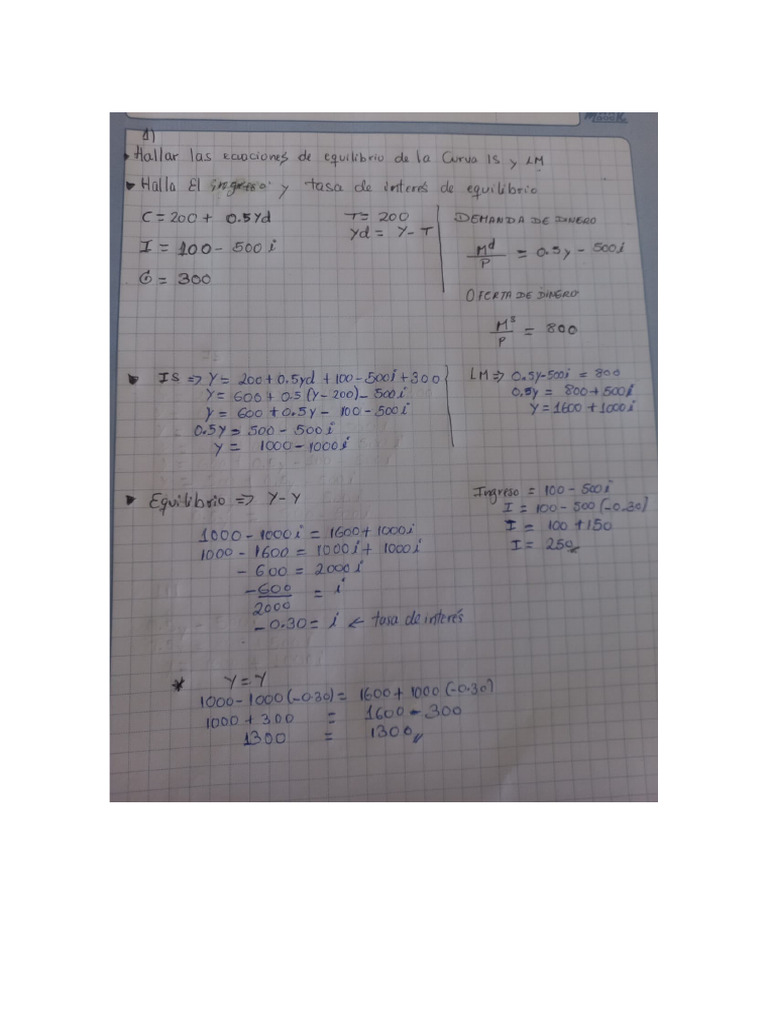 1)
Hallar las ecuaciones de equilibrio de la Curva IS y LM
Halla El ingreso y tasa de interés de equilibrio
C = 200 + 0.5Yd
I = 100 - 500i
G = 300
T = 200
Yd = Y - T
DEMANDA DE DINERO
M^d/P = 0.5y - 500i
OFERTA DE DINERO
M^s/P = 800
IS => Y = 200 + 0.5yd + 100 - 500i + 300
Y = 600 + 0.5(Y - 200) - 500i
Y = 600 + 0.5Y - 100 - 500i
0.5Y = 500 - 500i
Y = 1000 - 1000i
LM => 0.5y - 500i = 800
0.5y = 800 + 500i
Y = 1600 + 1000i
Equilibrio => Y - Y
1000 - 1000i = 1600 + 1000i
1000 - 1600 = 1000i + 1000i
- 600 = 2000i
-600/2000 = i
-0.30 = i ← tasa de interés
Ingreso = 100 - 500i
I = 100 - 500(-0.30)
I = 100 + 150
I = 250
* Y = Y
1000 - 1000(-0.30) = 1600 + 1000(-0.30)
1000 + 300 = 1600 - 300
1300 = 1300